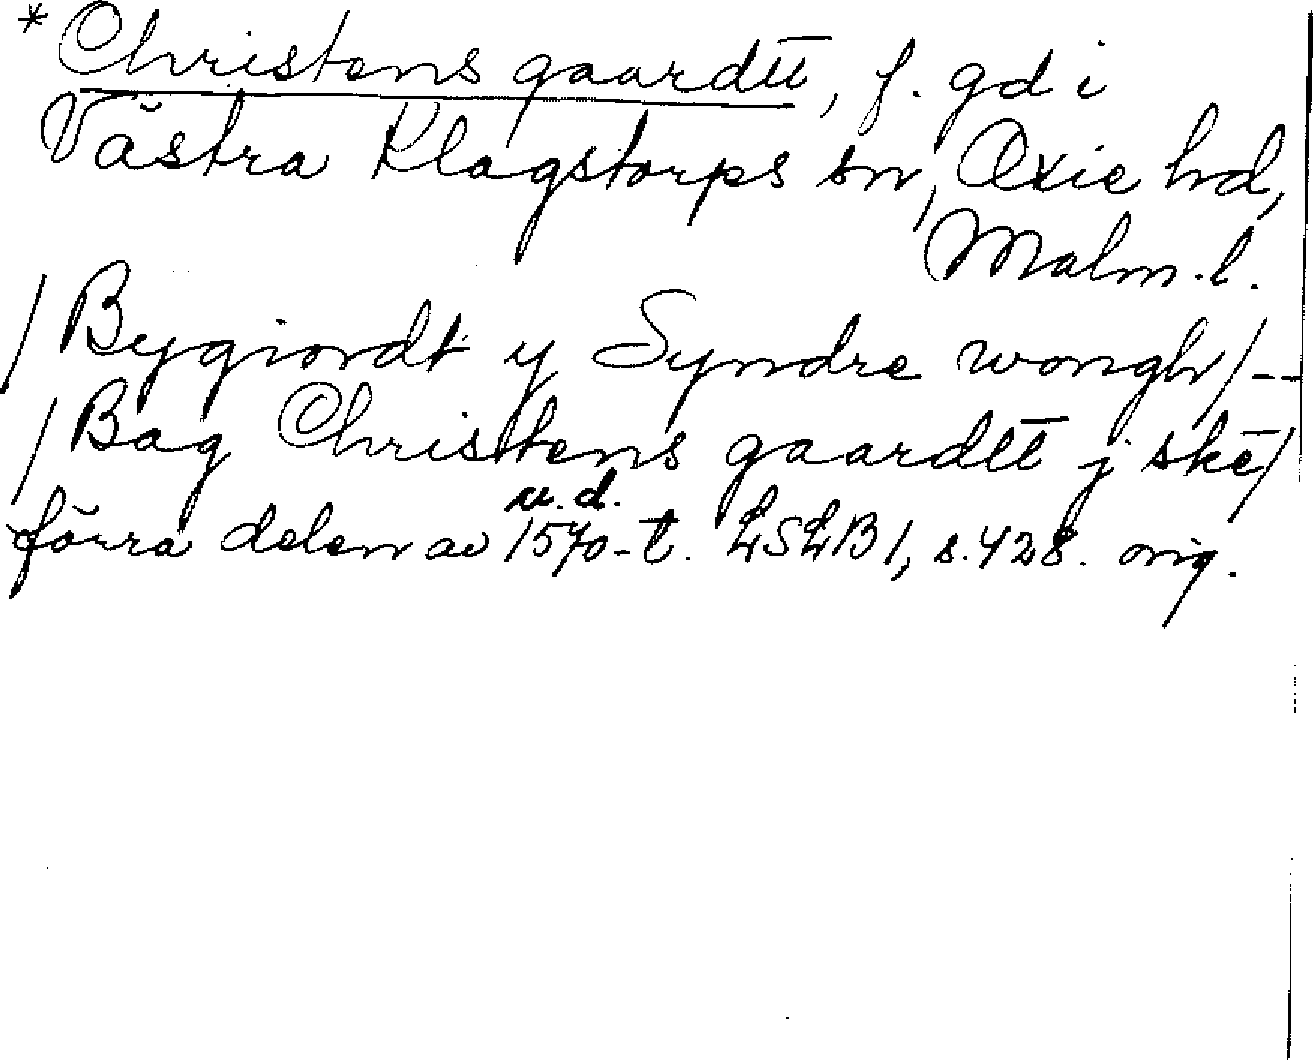 * Christens gaardtt̄, f. gd i
Västra Klagstorps sn, Oxie hd,
Malm. l.
/ Bygiordt y Syndre wongh / --
/ Bag Christens gaardtt̄ j skē /
u. d.
förra delen av 1570-t. LSLB 1, s. 428. orig.